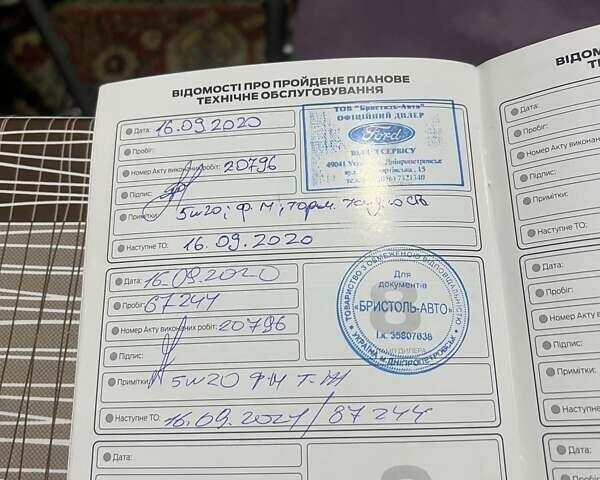 ВІДОМОСТІ ПРО ПРОЙДЕНЕ ПЛАНОВЕ
ТЕХНІЧНЕ ОБСЛУГОВУВАННЯ
Дата: 16.09.2020
Пробіг:
Номер Акту виконаних робіт: 20796
Підпис:
Примітки: 5w20; Ф.М; торм.
Наступне ТО: 16.09.2020
ТОВ "Бристоль-Авто"
ОФІЦІЙНИЙ ДИЛЕР
Ford
ВІДДІЛ СЕРВІСУ
49041 Дніпропетровськ
15
Дата: 16.09.2020
Пробіг: 67244
Номер Акту виконаних робіт: 20796
Підпис:
Примітки: 5w20 Ф-М Т-Ж
Наступне ТО: 16.09.2021/87244
ТОВАРИСТВО З ОБМЕЖЕНОЮ ВІДПОВІДАЛЬНІСТЮ
Для
документів
«БРИСТОЛЬ-АВТО»
І.к. 35807638
УКРАЇНА М.ДНІПРОПЕТРОВСЬК
Дата:
ВІДОМ
Дата:
Пробіг:
Номер Акту виконани
Підпис:
Примітки:
Наступне ТО:
Дата:
Пробіг:
Номер Акту викона
Підпис:
Примітки:
Наступне ТО:
Дата: